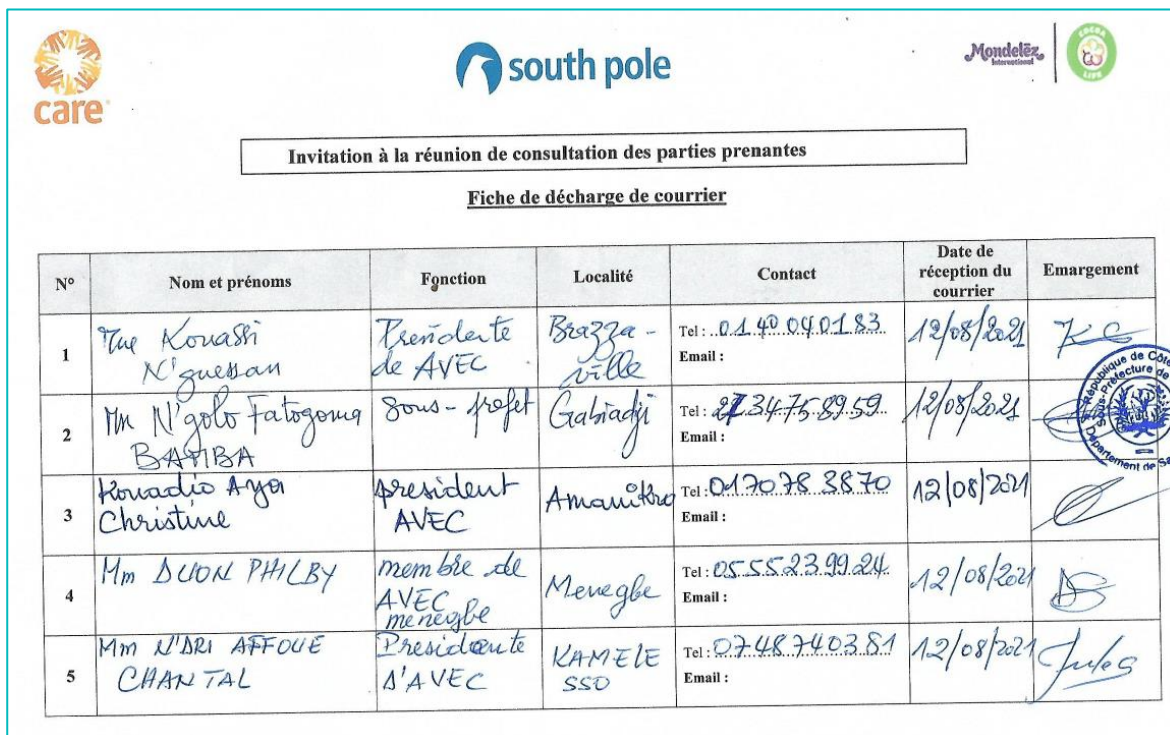 care
south pole
Mondelēz
International
COCOA
LIFE
Invitation à la réunion de consultation des parties prenantes
Fiche de décharge de courrier
N° Nom et prénoms Fonction Localité Contact Date de réception du courrier Emargement
1 Mme Kouassi N'guessan Présidente de AVEC Brazza-ville Tel : 01 40 04 01 83 Email : 12/08/2021
2 N'golo Fatogoma BAMBA Sous-préfet Gabiadji Tel : 27 34 75 89 59 Email : 12/08/2021
République de Côte
Sous-Préfecture de
Département de Sa
3 Kouadio Aya Christine président AVEC Amanikro Tel : 01 70 78 38 70 Email : 12/08/2021
4 Mm DUON PHILBY membre de AVEC menegbe Menegbe Tel : 05 55 23 99 24 Email : 12/08/2021
5 Mm N'DRI AFFOUE CHANTAL Presidante D'AVEC KAMELE SSO Tel : 07 48 74 03 81 Email : 12/08/2021 Jules